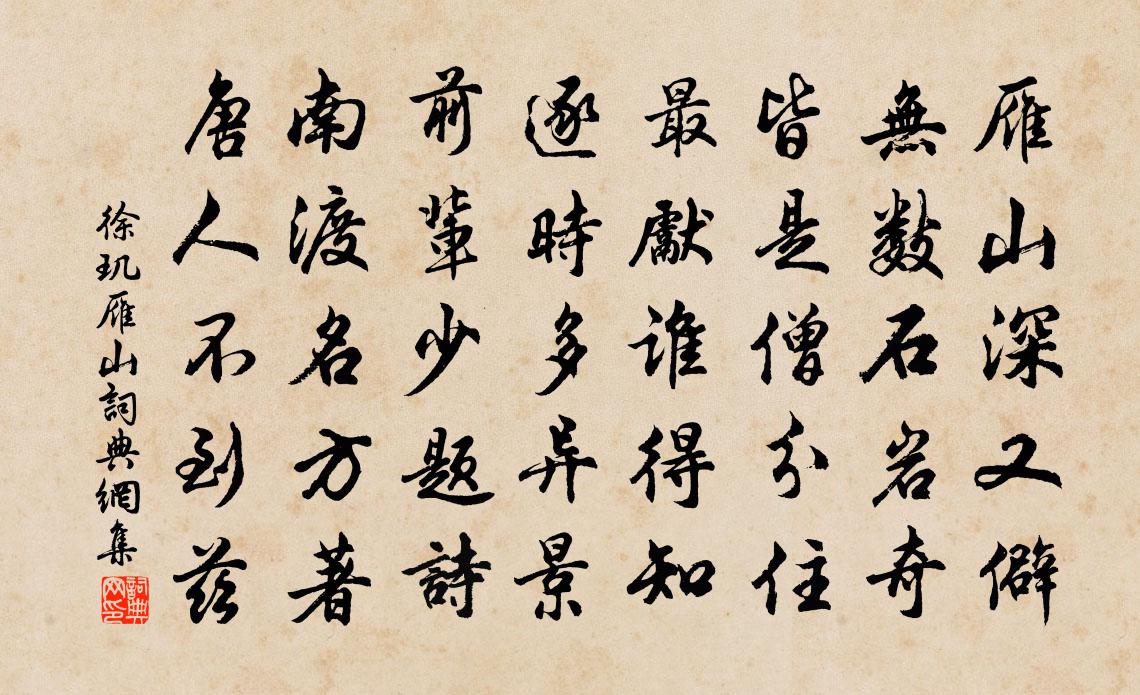 雁山深又僻
無数石岩奇
皆是僧分住
最獻誰得知
逐時多异景
前輩少題詩
南渡名方著
唐人不到兹
徐玑雁山詞典網集
詞典
网印